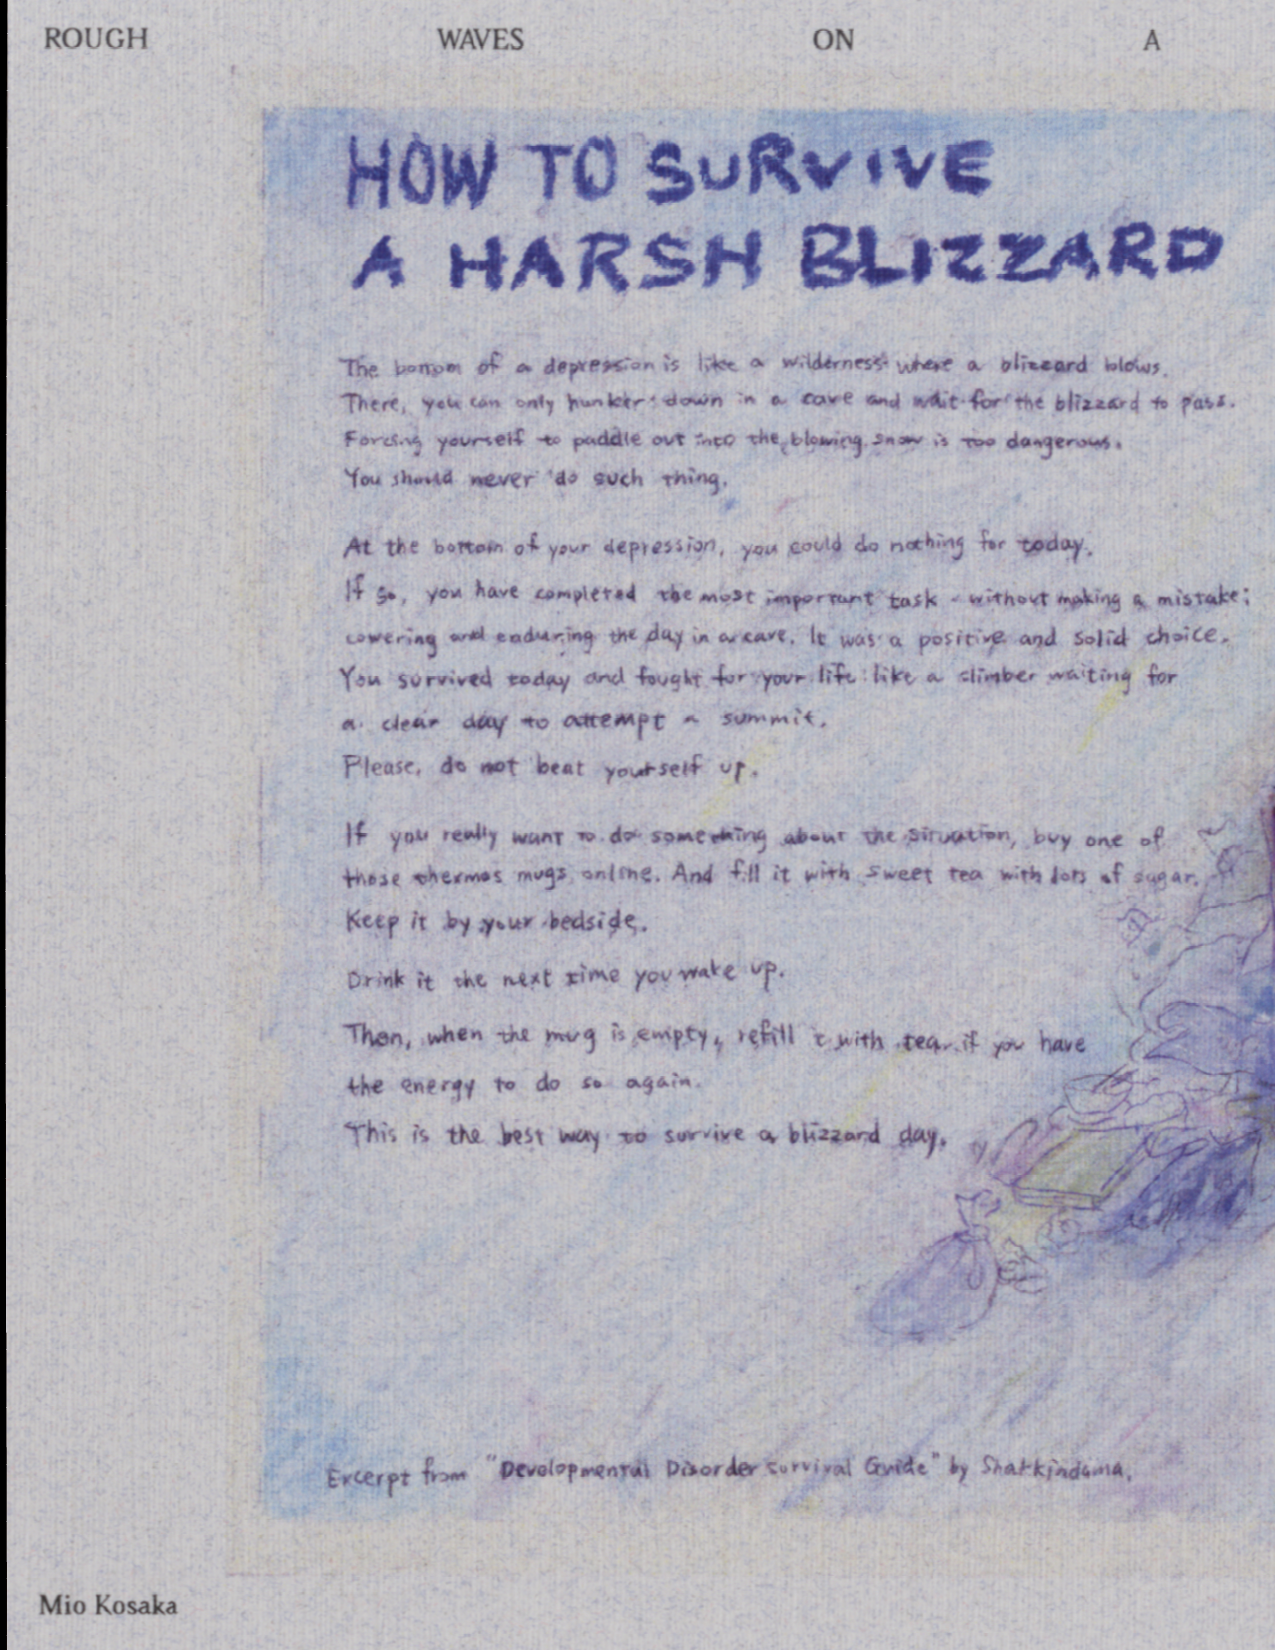 ROUGH WAVES ON A
HOW TO SURVIVE
A HARSH BLIZZARD
The bottom of a depression is like a wilderness where a blizzard blows.
There, you can only hunker down in a cave and wait for the blizzard to pass.
Forcing yourself to paddle out into the blowing snow is too dangerous.
You should never do such thing.
At the bottom of your depression, you could do nothing for today.
If so, you have completed the most important task - without making a mistake;
cowering and enduring the day in a cave. It was a positive and solid choice.
You survived today and fought for your life like a climber waiting for
a clear day to attempt a summit.
Please, do not beat yourself up.
If you really want to do something about the situation, buy one of
those thermos mugs online. And fill it with sweet tea with lots of sugar.
Keep it by your bedside.
Drink it the next time you wake up.
Then, when the mug is empty, refill it with tea if you have
the energy to do so again.
This is the best way to survive a blizzard day.
Excerpt from "Developmental Disorder survival Guide" by
Mio Kosaka